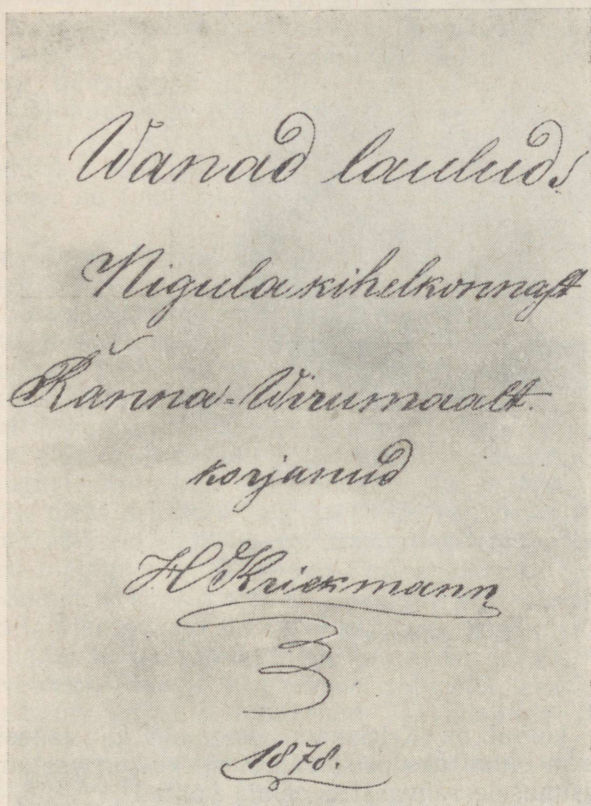 Wanad laulud
Nigula kihelkonnast
Ranna-Wirumaalt.
korjanud
H Kriekmann
1878.